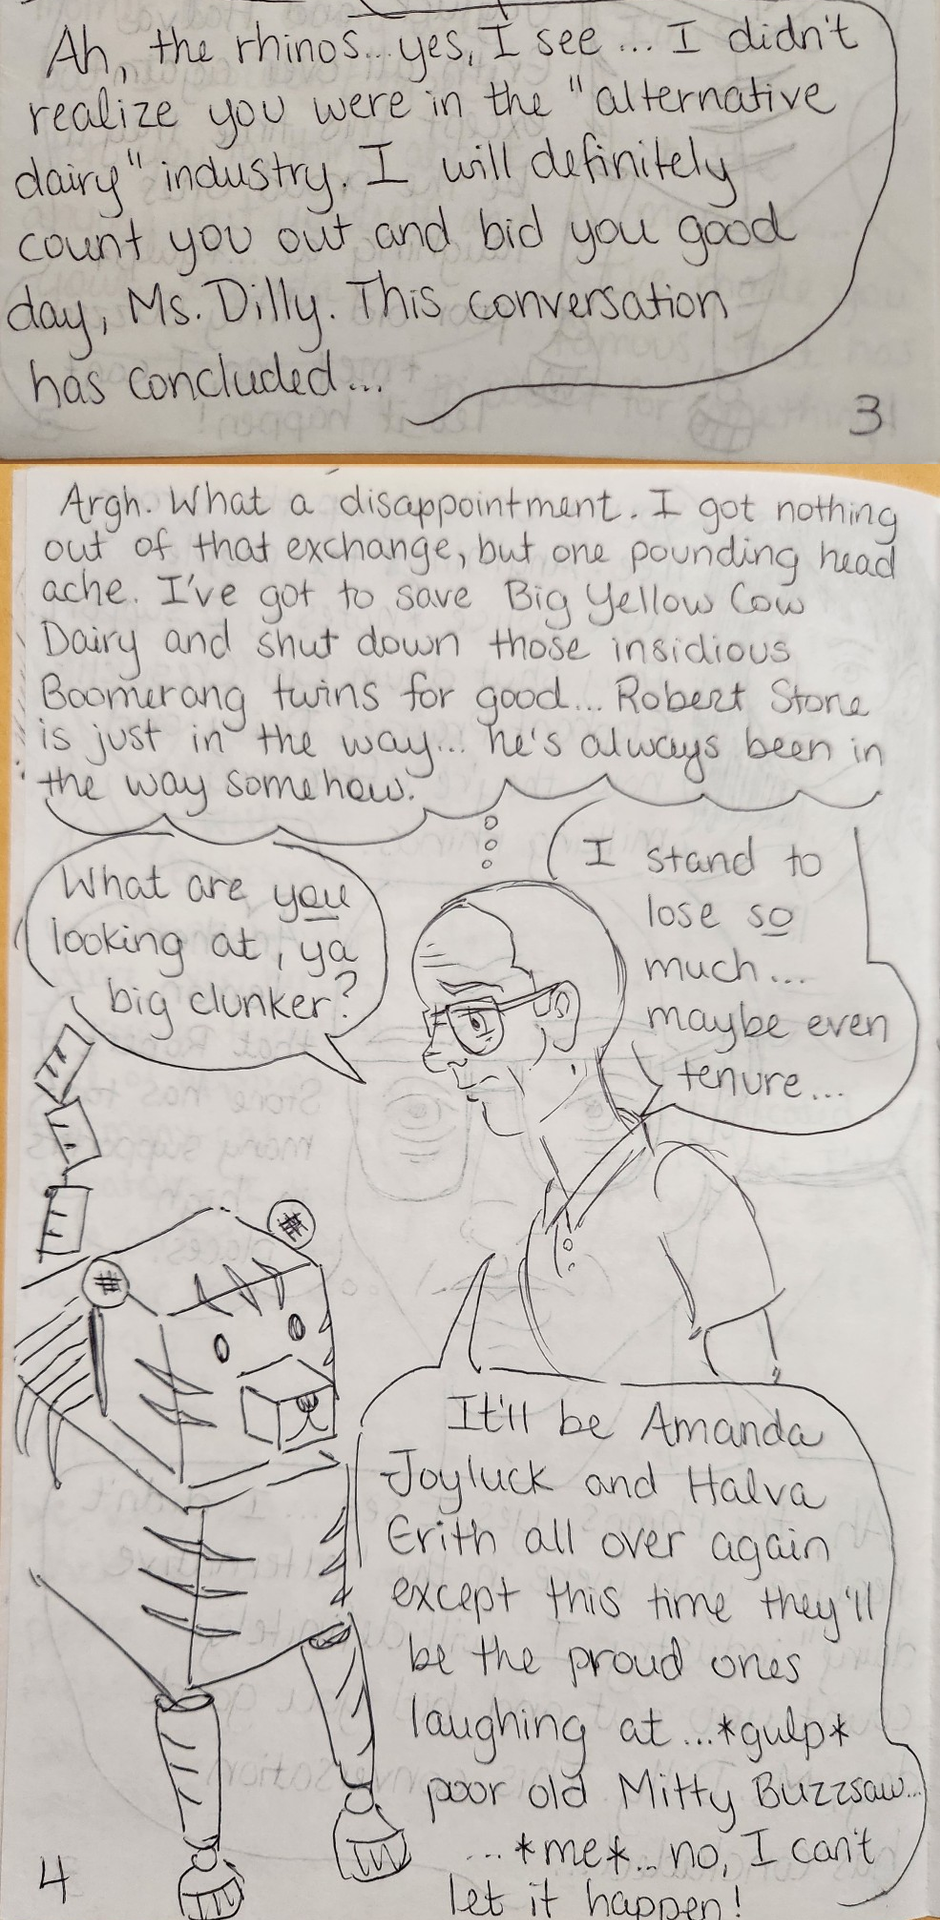 Ah, the rhinos... yes, I see... I didn't
realize you were in the "alternative
dairy" industry. I will definitely
count you out and bid you good
day, Ms. Dilly. This conversation
has concluded...
3
Argh. What a disappointment. I got nothing
out of that exchange, but one pounding head
ache. I've got to save Big Yellow Cow
Dairy and shut down those insidious
Boomerang twins for good... Robert Stone
is just in the way... he's always been in
the way somehow.
What are you
looking at, ya
big clunker?
I stand to
lose so
much...
maybe even
tenure...
It'll be Amanda
Joyluck and Halva
Erith all over again
except this time they'll
be the proud ones
laughing at...*gulp*
poor old Mitty Buzzsaw...
...*me*... no, I can't
let it happen!
4